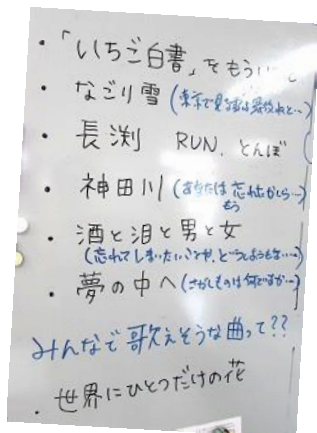 ・「いちご白書」をもう
・なごり雪 (東京で見る雪は最後ねと…)
・長渕 RUN、とんぼ
・神田川 (あなたは もう 忘れたかしら…)
・酒と泪と男と女
(忘れてしまいたいことが、どうしようもない…)
・夢の中へ (さがしものは何ですか…)
みんなで歌えそうな曲って??
・世界にひとつだけの花